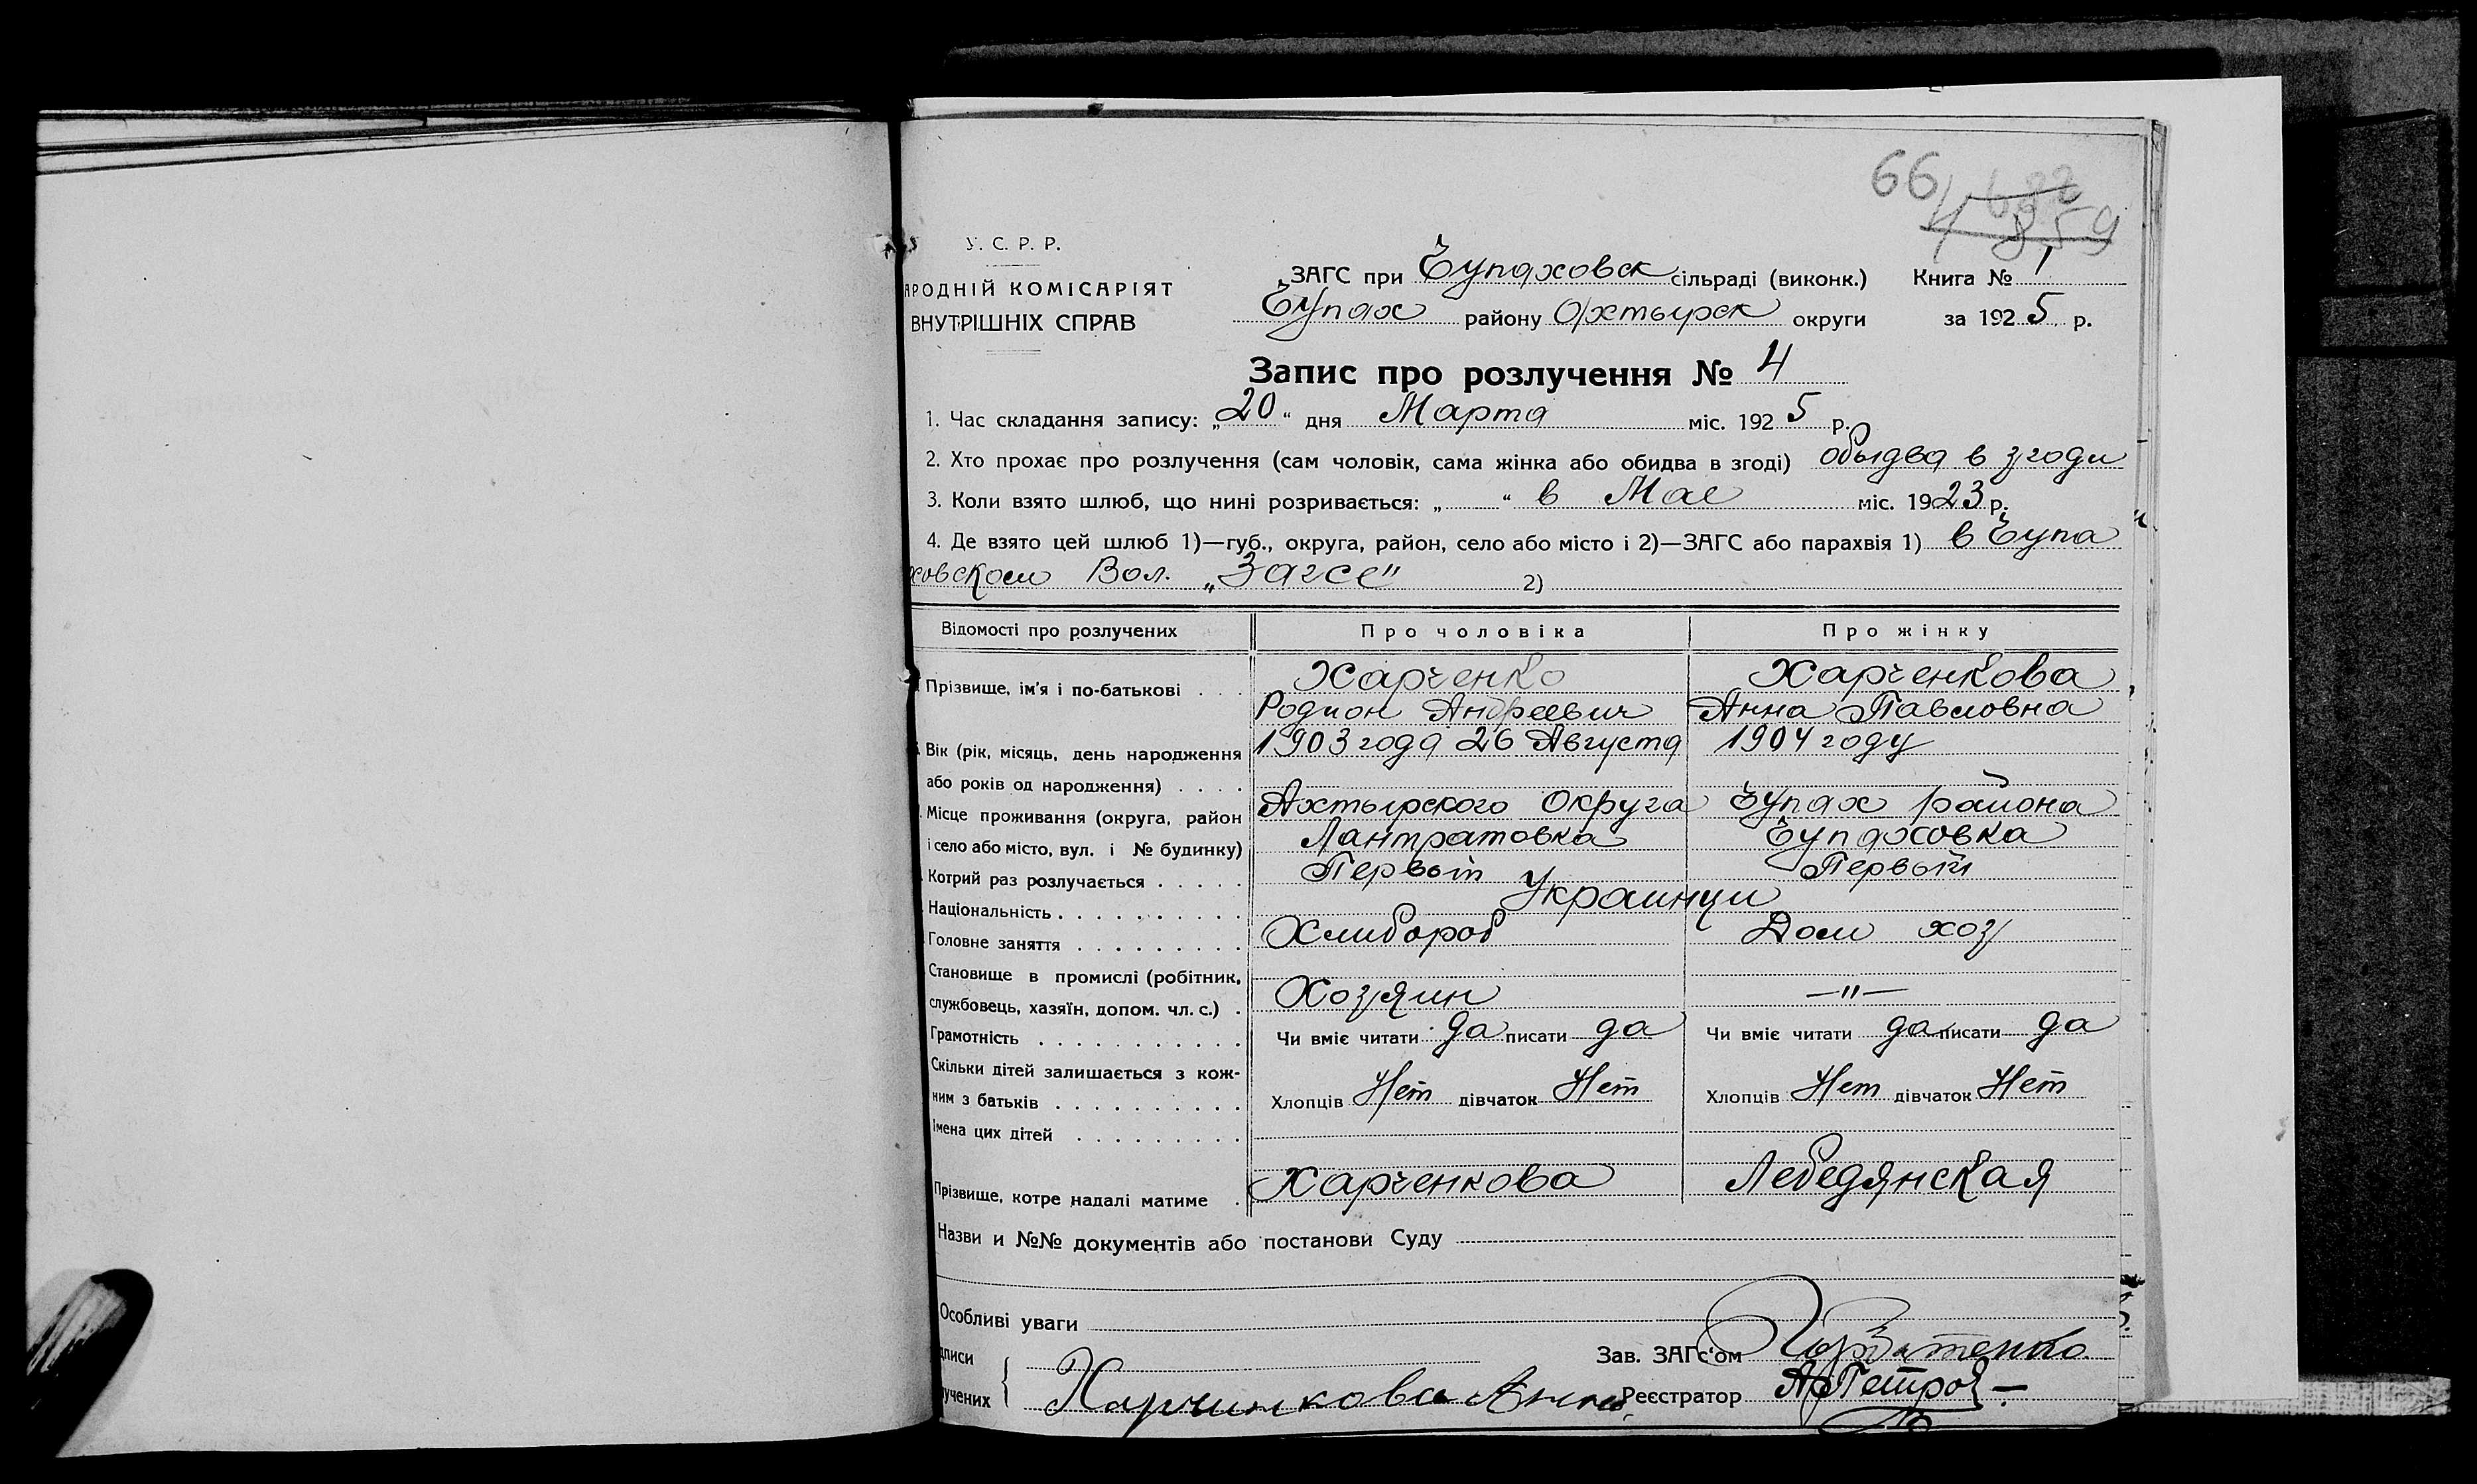 66
632
859
У. С. Р. Р.
АРОДНІЙ КОМІСАРІЯТ
ВНУТРІШНІХ СПРАВ
ЗАГС при Чупаховск сільраді (виконк.) Книга № 1
Чупах району Охтырск округи за 1925 р.
Запис про розлучення № 4
1. Час складання запису: „20“ дня Марта міс. 1925 р.
2. Хто прохає про розлучення (сам чоловік, сама жінка або обидва в згоді) обыдва в згоди
3. Коли взято шлюб, що нині розривається: „ “ в Мае міс. 1923 р.
4. Де взято цей шлюб 1)—губ., округа, район, село або місто і 2)—ЗАГС або парахвія 1) в Чупа
ховском Вол. „Загсе" 2)
Відомості про розлучених Про чоловіка Про жінку
Прізвище, ім'я і по-батькові . . . Харченко Харченкова
Родион Андреевич Анна Павловна
Вік (рік, місяць, день народження 1903 года 26 Августа 1904 году
або років од народження) . . . .
Місце проживання (округа, район Ахтырского Округа Чупах района
і село або місто, вул. і № будинку) Лантратовка Чупаховка
Котрий раз розлучається . . . . . Первый Первый
Національність . . . . . . . . . . Украинци
Головне заняття . . . . . . . . . Хлибороб Дом хоз
Становище в промислі (робітник,
службовець, хазяїн, допом. чл. с.) . Хозяин —"—
Грамотність . . . . . . . . . . . Чи вміє читати да писати да Чи вміє читати да писати да
Скільки дітей залишається з кож-
ним з батьків . . . . . . . . . . Хлопців Нет дівчаток Нет Хлопців Нет дівчаток Нет
Імена цих дітей . . . . . . . . .
Прізвище, котре надалі матиме . Харченкова Лебедянская
Назви и №№ документів або постанови Суду
Особливі уваги
дписи Зав. ЗАГс'ом
лучених Харчинкова Анна Реєстратор АрПетров